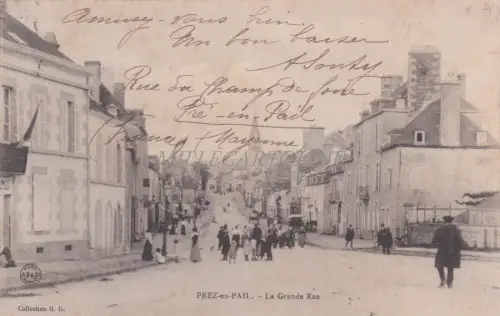 Amusez-vous bien
Un bon baiser
A Souty
Rue du Champ de foire
Pré-en-Pail
Mayenne
MILLECARTOLINE
PREZ-en-PAIL. - La Grande Rue
Collection G. G.